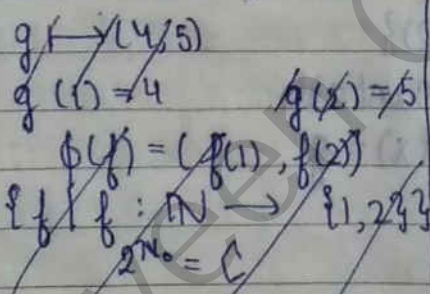 g ↦ (4, 5)
g (1) = 4 g(2) = 5
ϕ(f) = (f(1), f(2))
{f | f : ℕ → {1, 2}}
2^ℵ₀ = C